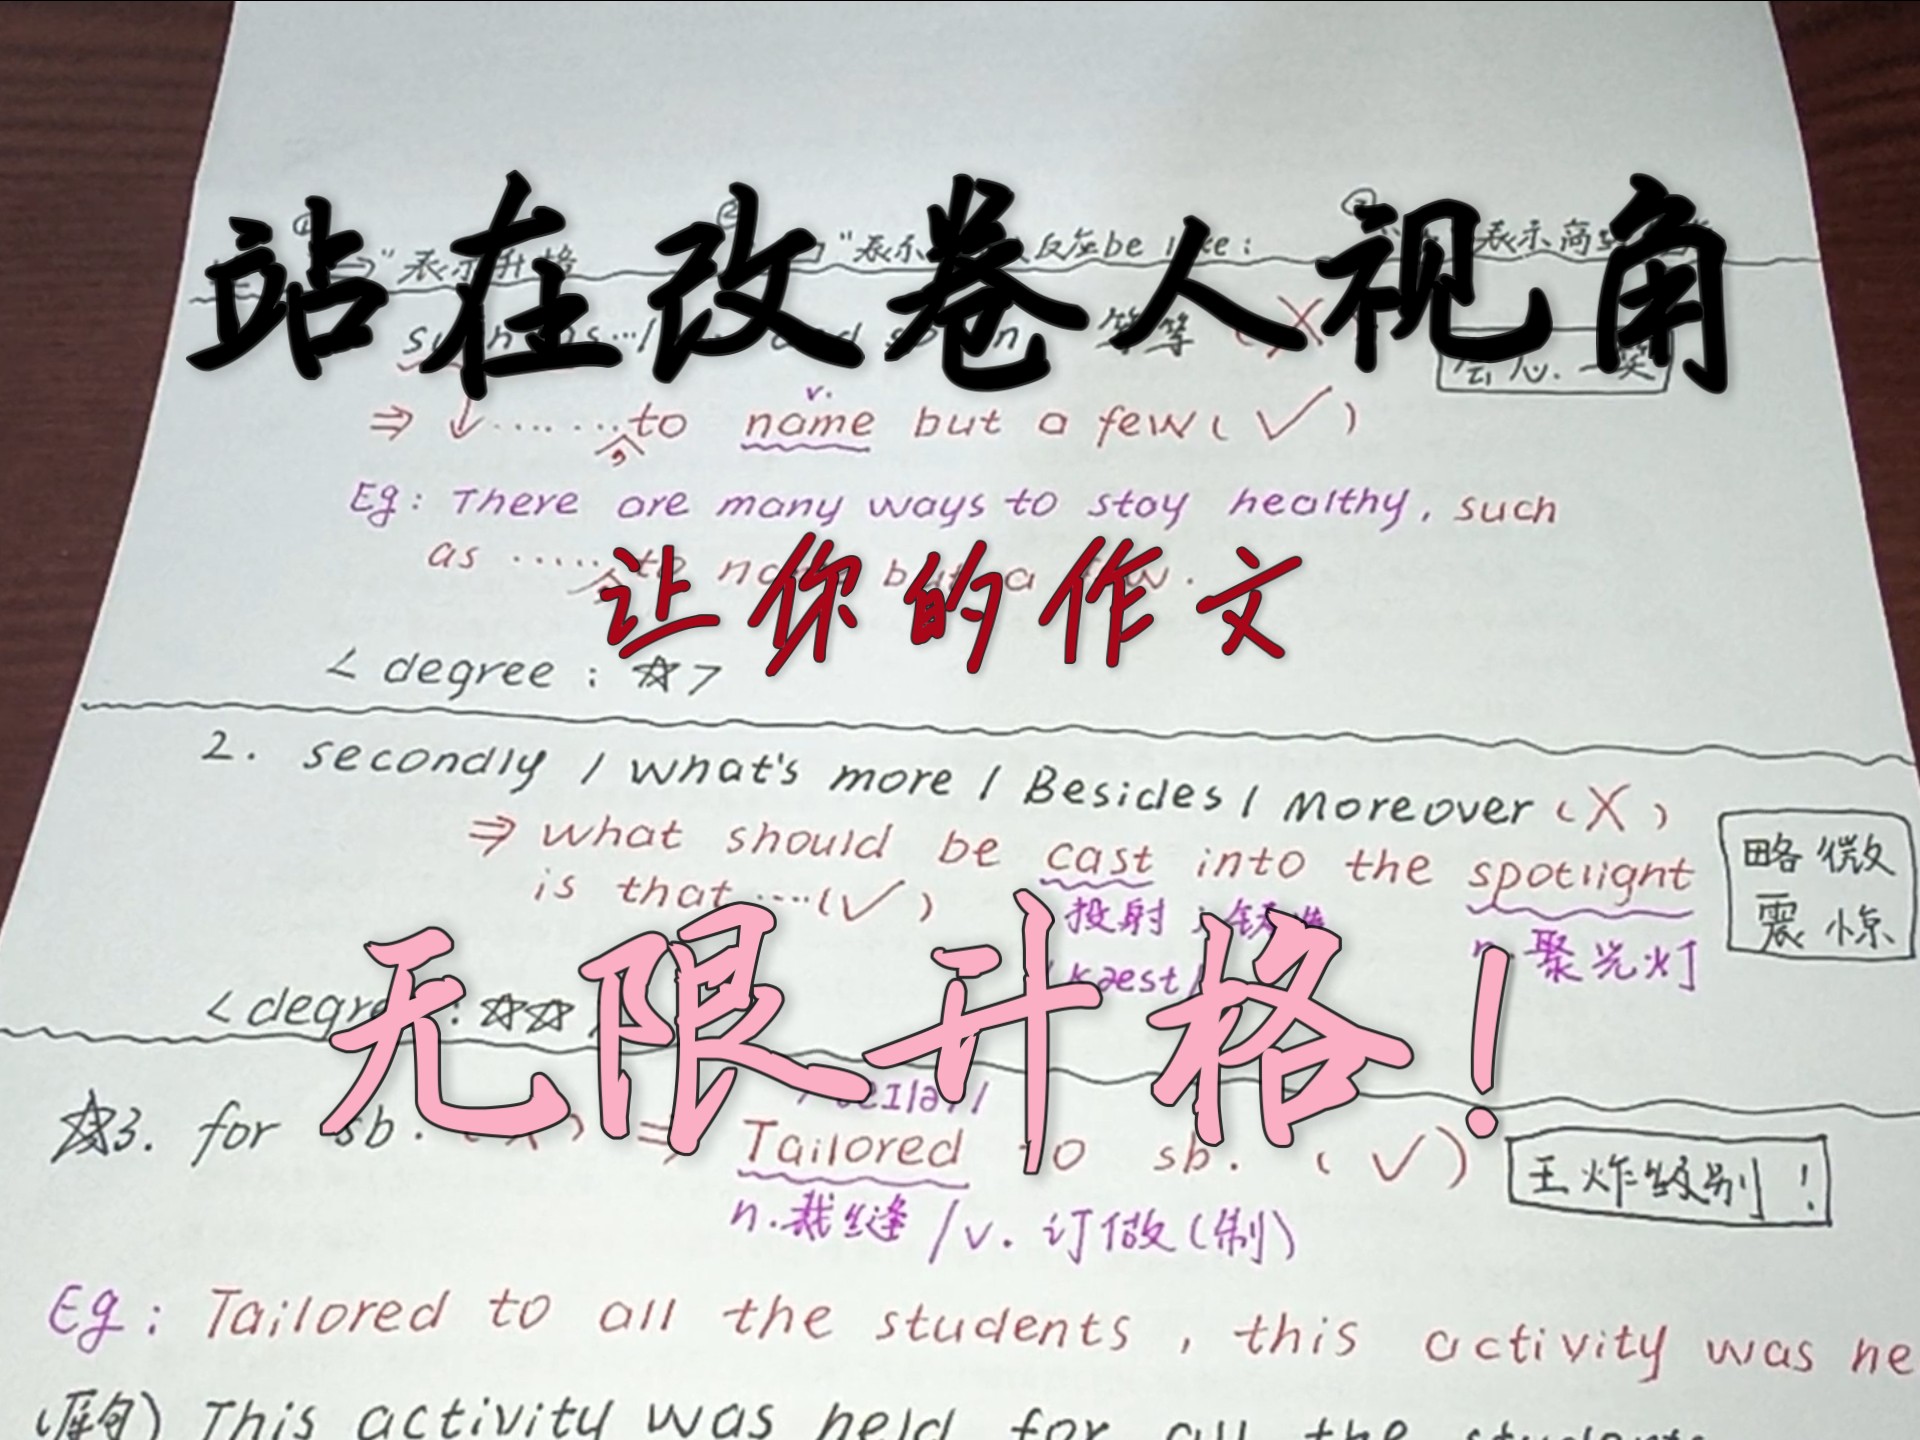 站在改卷人视角
"表示升格
"表示
反应be like:
表示高
such as…/
等等 (X
会心一笑
v.
⇒ ↓ ........, to name but a few ( ✓ )
Eg: There are many ways to stay healthy, such
as ......, to name but a few.
让你的作文
< degree : ☆ >
2. secondly / what's more / Besides / Moreover (X)
⇒ what should be cast into the spotlight
is that ....(✓)
略微
震惊
投射
n. 聚光灯
/kæst/
无限升格!
< degree : ☆☆
☆3. for sb. (X) ⇒ Tailored to sb. (✓)
王炸级别!
n.裁缝 / v. 订做(制)
Eg: Tailored to all the students, this activity was he
(原句) This activity was held for all the students